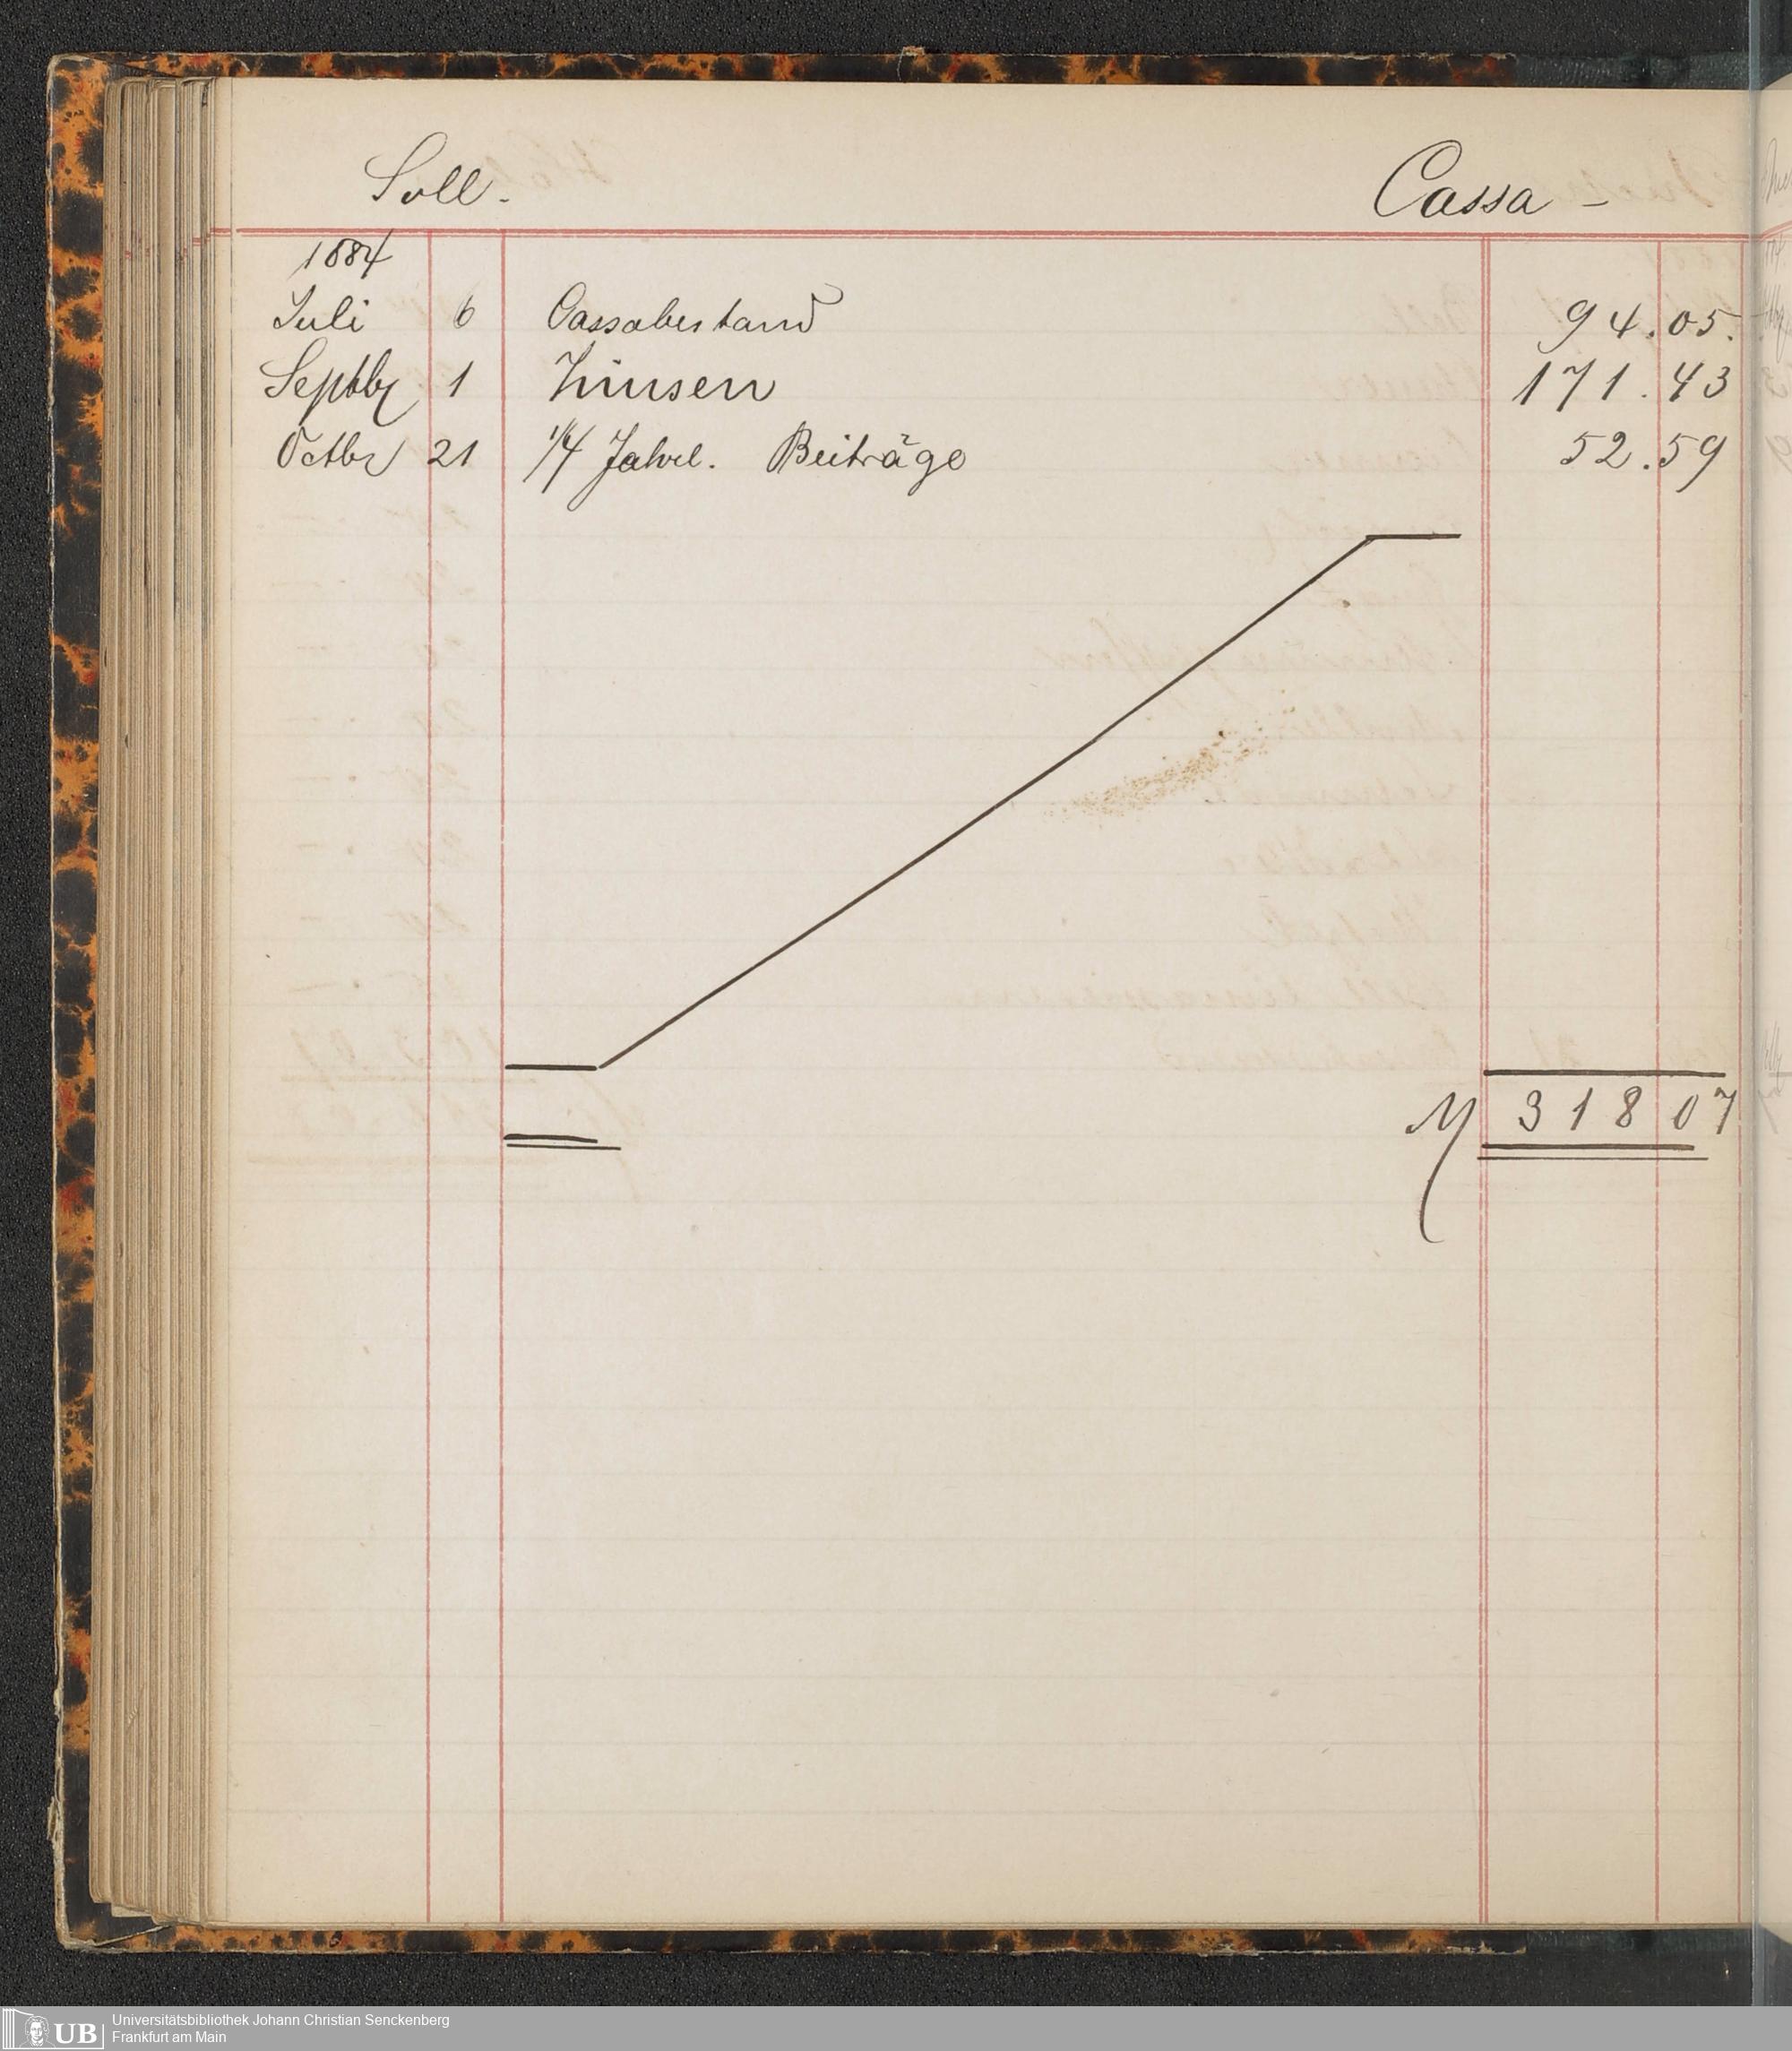 Soll. Cassa -
1884
Juli 6 Cassabestand 94.05.
Septbr 1 Zinsen 171.43
Octbr 21 1/4 Jahrl. Beiträge 52.59
M 318 07
UB Universitätsbibliothek Johann Christian Senckenberg
Frankfurt am Main